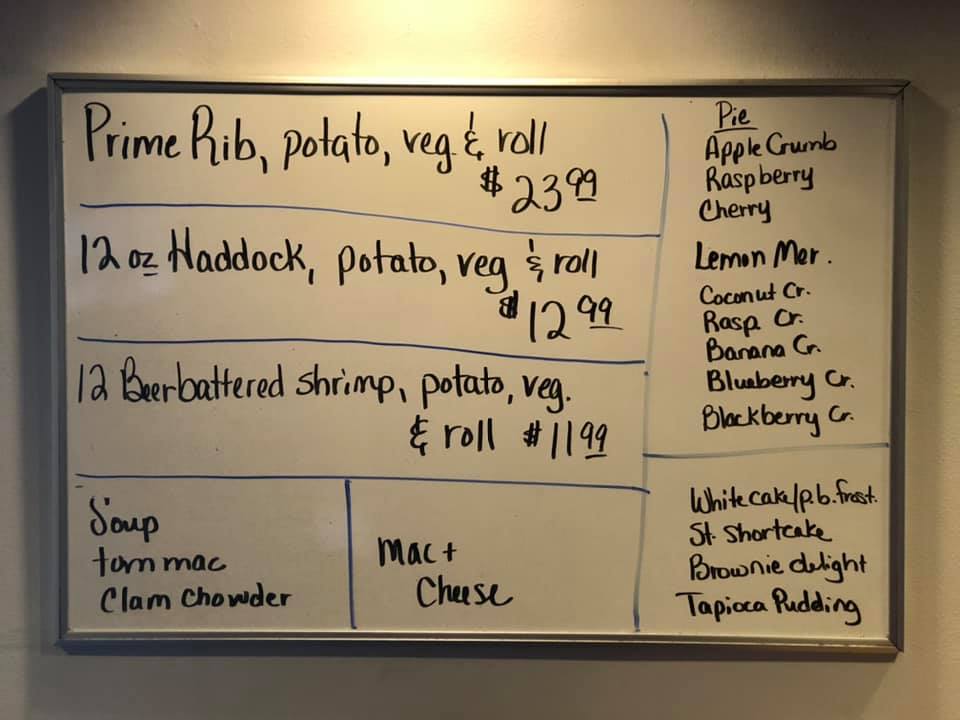 Prime Rib, potato, veg & roll
$23.99
12 oz Haddock, potato, veg & roll
$12.99
12 Beerbattered shrimp, potato, veg.
& roll $11.99
Soup
tom mac
Clam Chowder
Mac +
Cheese
Pie
Apple Crumb
Raspberry
Cherry
Lemon Mer.
Coconut Cr.
Rasp. Cr.
Banana Cr.
Blueberry Cr.
Blackberry Cr.
White cake/p.b. frost.
St. Shortcake
Brownie delight
Tapioca Pudding